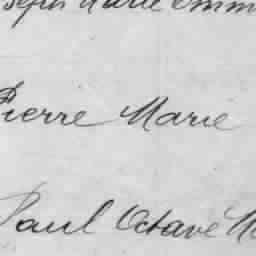 Marie
Pierre Marie
Paul Octave